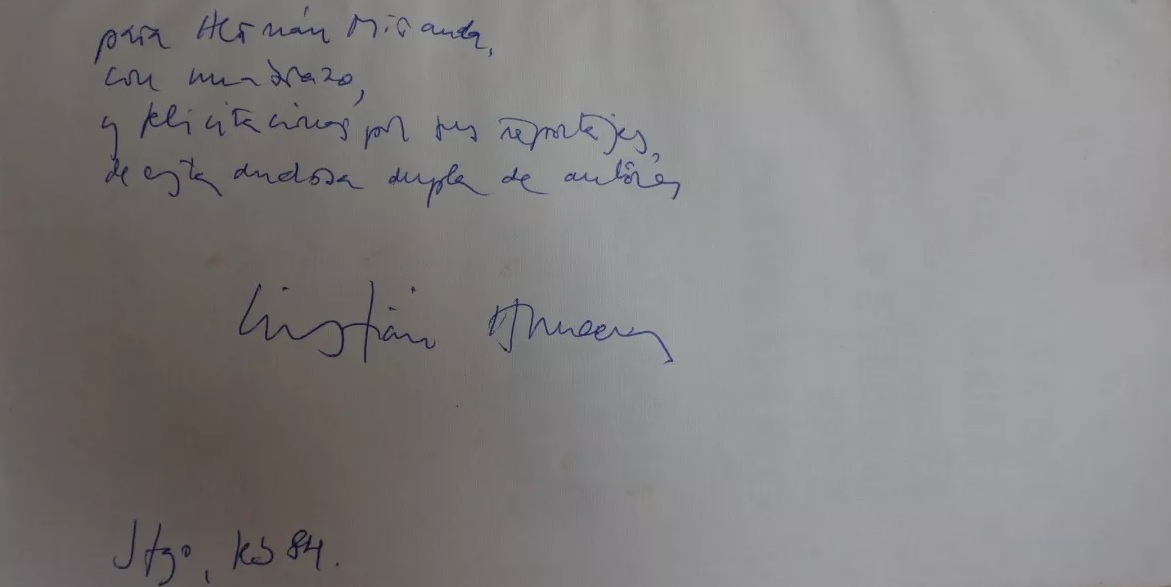 para Hernán Miranda,
con un abrazo,
y felicitaciones por sus reportajes,
de esta dudosa dupla de autores
Cristián
Stgo, 84.